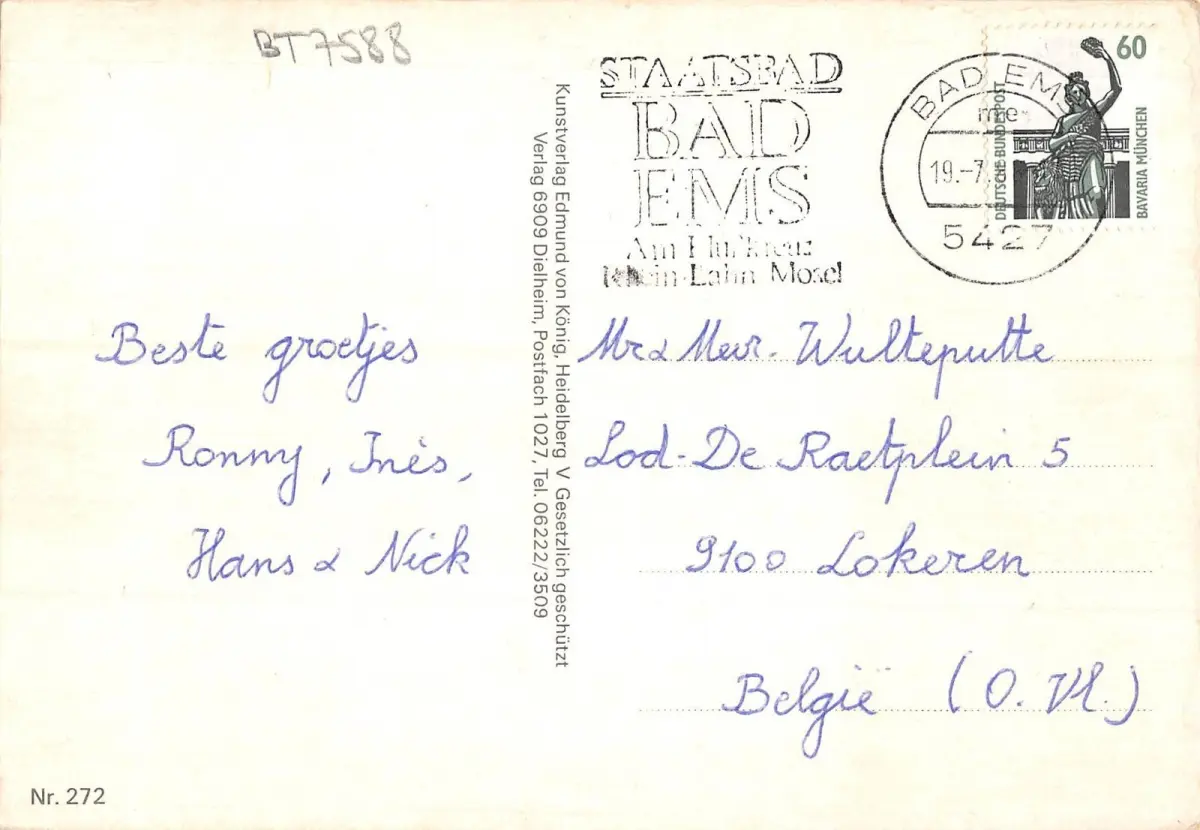 BT7588
STAATSBAD
BAD
EMS
Am Flußkreuz
Rhein-Lahn Mosel
BAD EMS
me
19.-7.
5427
60
DEUTSCHE BUNDESPOST
BAVARIA MÜNCHEN
Kunstverlag Edmund von König, Heidelberg V Gesetzlich geschützt
Verlag 6909 Dielheim, Postfach 1027, Tel. 06222/3509
Beste groetjes
Ronny, Inès,
Hans & Nick
Mr & Mevr. Wulteputte
Lod. De Raetplein 5
9100 Lokeren
België (O. Vl.)
Nr. 272